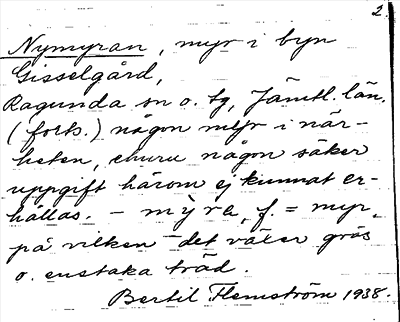 2.
Nymyran, myr i byn
Gisselgård,
Ragunda sn o. tg, Jämtl. län.
(forts.) någon myr i när-
heten, ehuru någon säker
uppgift härom ej kunnat er-
hållas. – mỳra, f. = myr,
på vilken det växer gräs
o. enstaka träd.
Bertil Flemström 1938.